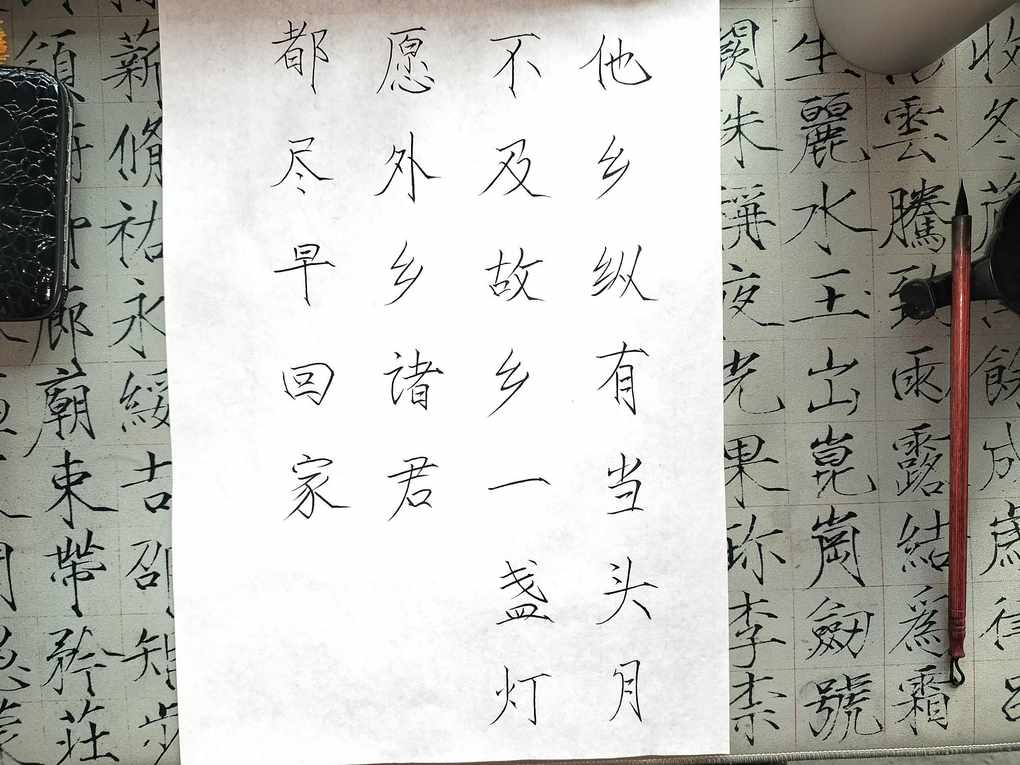 收冬藏
餘成歲律
雲騰致雨露結爲霜
生麗水玉出崑崗劍號
闕珠稱夜光果珍李柰
他乡纵有当头月
不及故乡一盏灯
愿外乡诸君
都尽早回家
薪脩祜永綏吉劭矩步
領
廊廟束帶矜莊